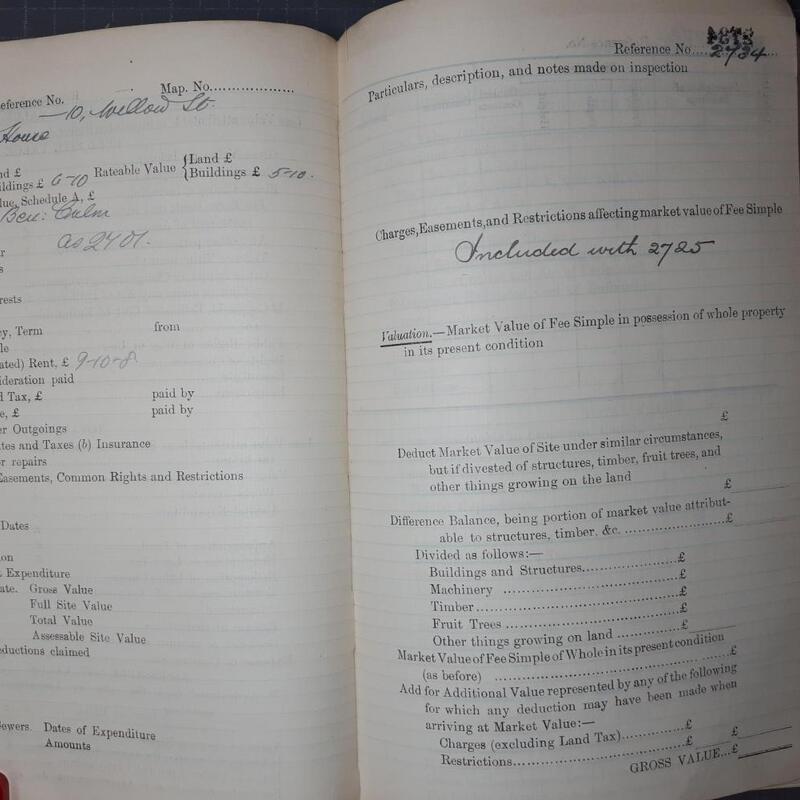 eference No.
Map. No..................
—10, Willow St.
House
nd £
ildings £ 6-10 Rateable Value {Land £
Buildings £ 5-10.
lue, Schedule A, £
Ben: Culm
as 2701.
r
s
rests
cy, Term from
le
ated) Rent, £ 9-10-8
ideration paid
d Tax, £ paid by
e, £ paid by
er Outgoings
tes and Taxes (b) Insurance
or repairs
Easements, Common Rights and Restrictions
Dates
on
t Expenditure
ate. Gross Value
Full Site Value
Total Value
Assessable Site Value
eductions claimed
ewers. Dates of Expenditure
Amounts
Reference No....2734....
Particulars, description, and notes made on inspection
Charges, Easements, and Restrictions affecting market value of Fee Simple
Included with 2725
Valuation.—Market Value of Fee Simple in possession of whole property
in its present condition
£
Deduct Market Value of Site under similar circumstances,
but if divested of structures, timber, fruit trees, and
other things growing on the land £
Difference Balance, being portion of market value attribut-
able to structures, timber, &c. ........................£
Divided as follows:—
Buildings and Structures......................£
Machinery ........................................£
Timber..............................................£
Fruit Trees ........................................£
Other things growing on land ..............£
Market Value of Fee Simple of Whole in its present condition
(as before) ..............................................£
Add for Additional Value represented by any of the following
for which any deduction may have been made when
arriving at Market Value:—
Charges (excluding Land Tax)...............£
Restrictions........................................£ £
GROSS VALUE...£